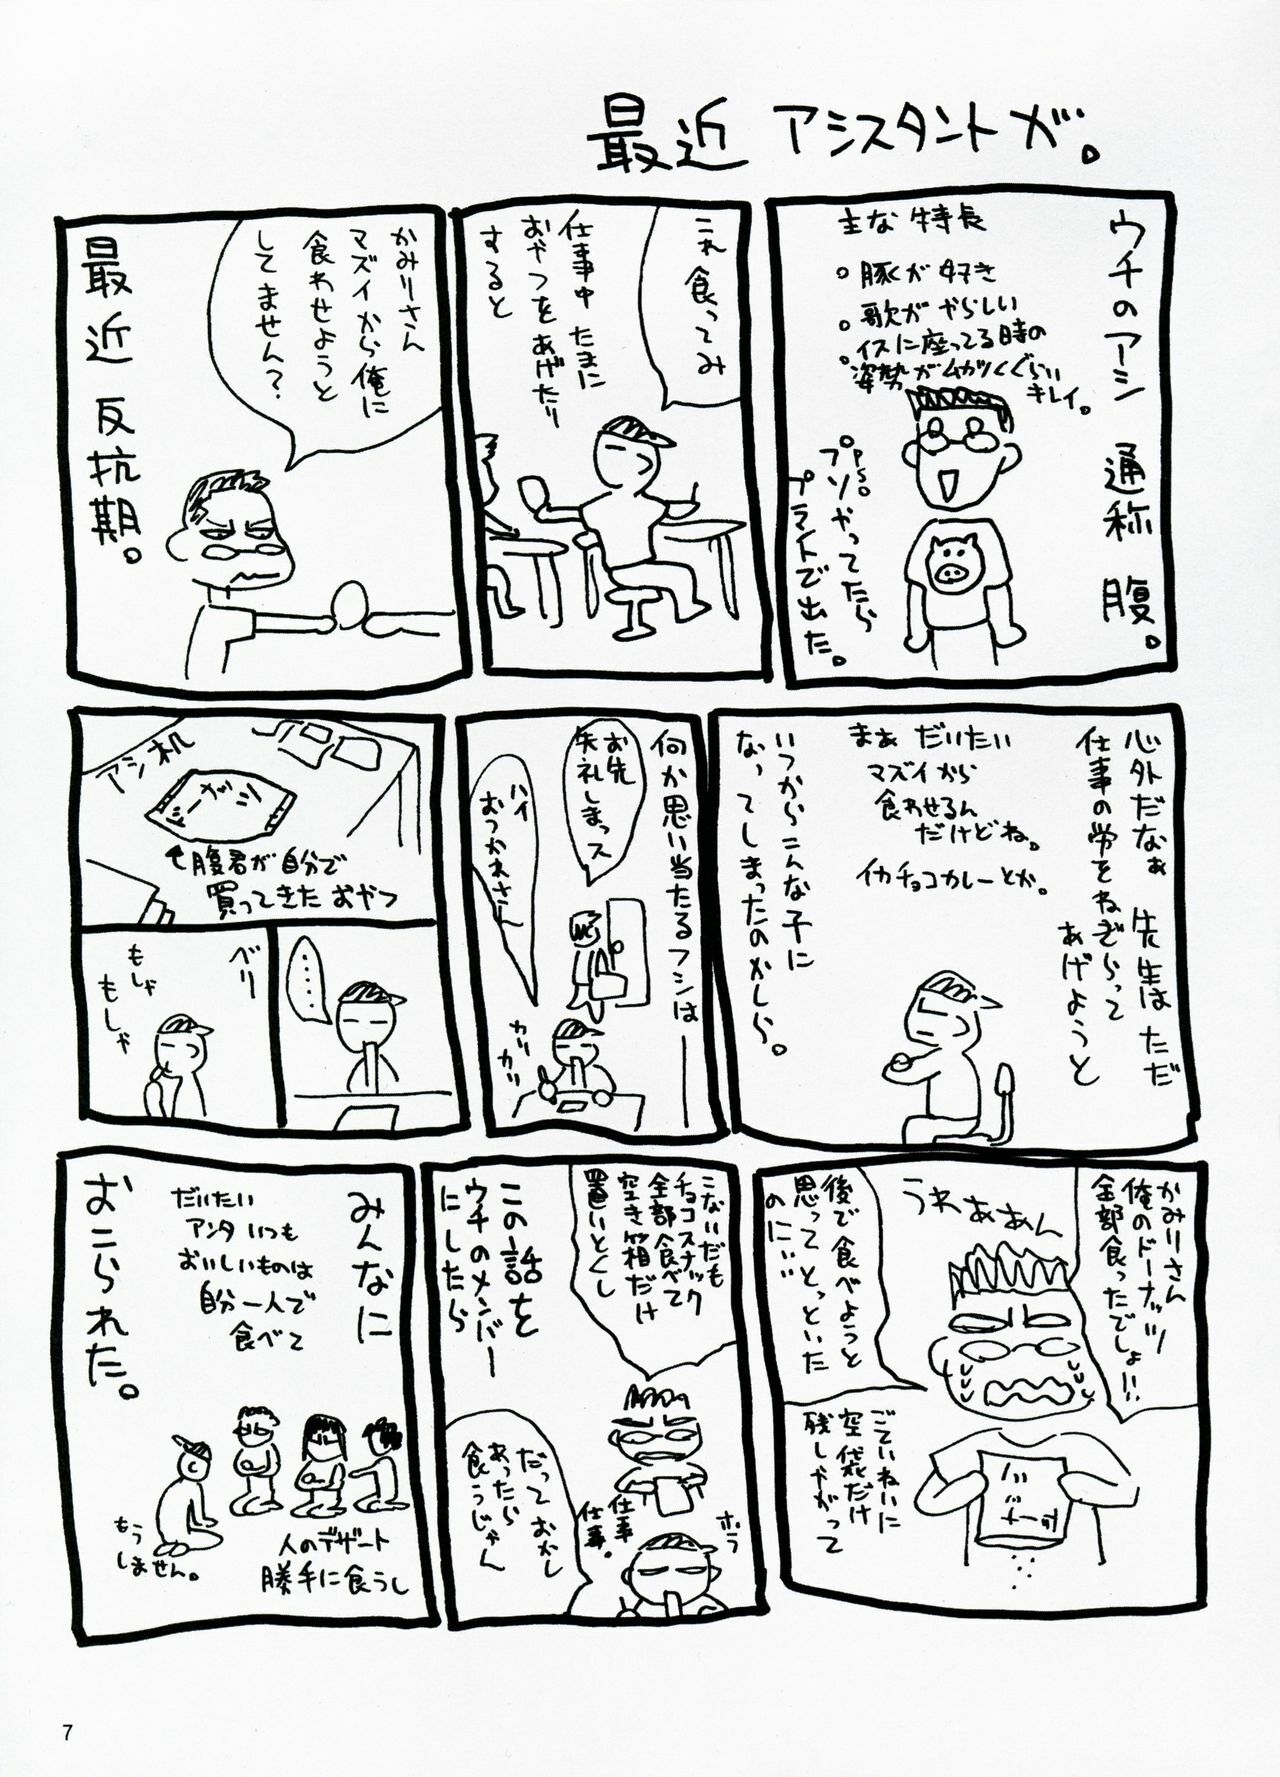 最近 アシスタントが。
ウチのアシ 通称 腹。
主な特長
。豚が好き
。歌がやらしい
。イスに座ってる時の
姿勢がムカツくぐらい
キレイ。
P.S。
プソやってたら
プライトで出た。
これ食ってみ
仕事中 たまに
おやつをあげたり
すると
かみりさん
マズイから俺に
食わせようと
してません？
最近 反抗期。
心外だなぁ 先生はただ
仕事の労をねぎらって
あげようと
まぁ だいたい
マズイから
食わせるん
だけどね。
イカチョコカレーとか。
いつからこんな子に
なってしまったのかしら。
何か思い当たるフシは――
お先
失礼しまっス
ハイ
おつかれさん
カリ
カリ
アシ机
↑腹君が自分で
買ってきたおやつ
‥‥‥
ベリ
もしゃ
もしゃ
かみりさん
俺のドーナッツ
全部食ったでしょ!!
うわぁあん
後で食べようと
思ってとっといた
のに‥
ごていねいに
空袋だけ
残しやがって
こないだも
チョコスナック
全部食べて
空き箱だけ
置いとくし
この話を
ウチのメンバー
にしたら
だっておかし
あったら
食うじゃん
ホラ
仕事
仕事。
みんなに
おこられた。
だいたい
アンタいつも
おいしいものは
自分一人で
食べて
人のデザート
勝手に食うし
もう
しません。
7